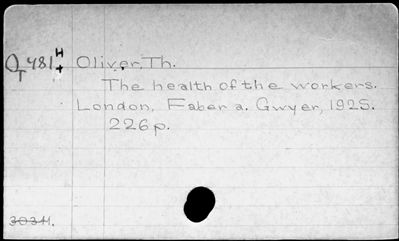 QT 481 H+
Oliver, Th.
The health of the workers.
London, Faber a. Gwyer, 1925.
226 p.